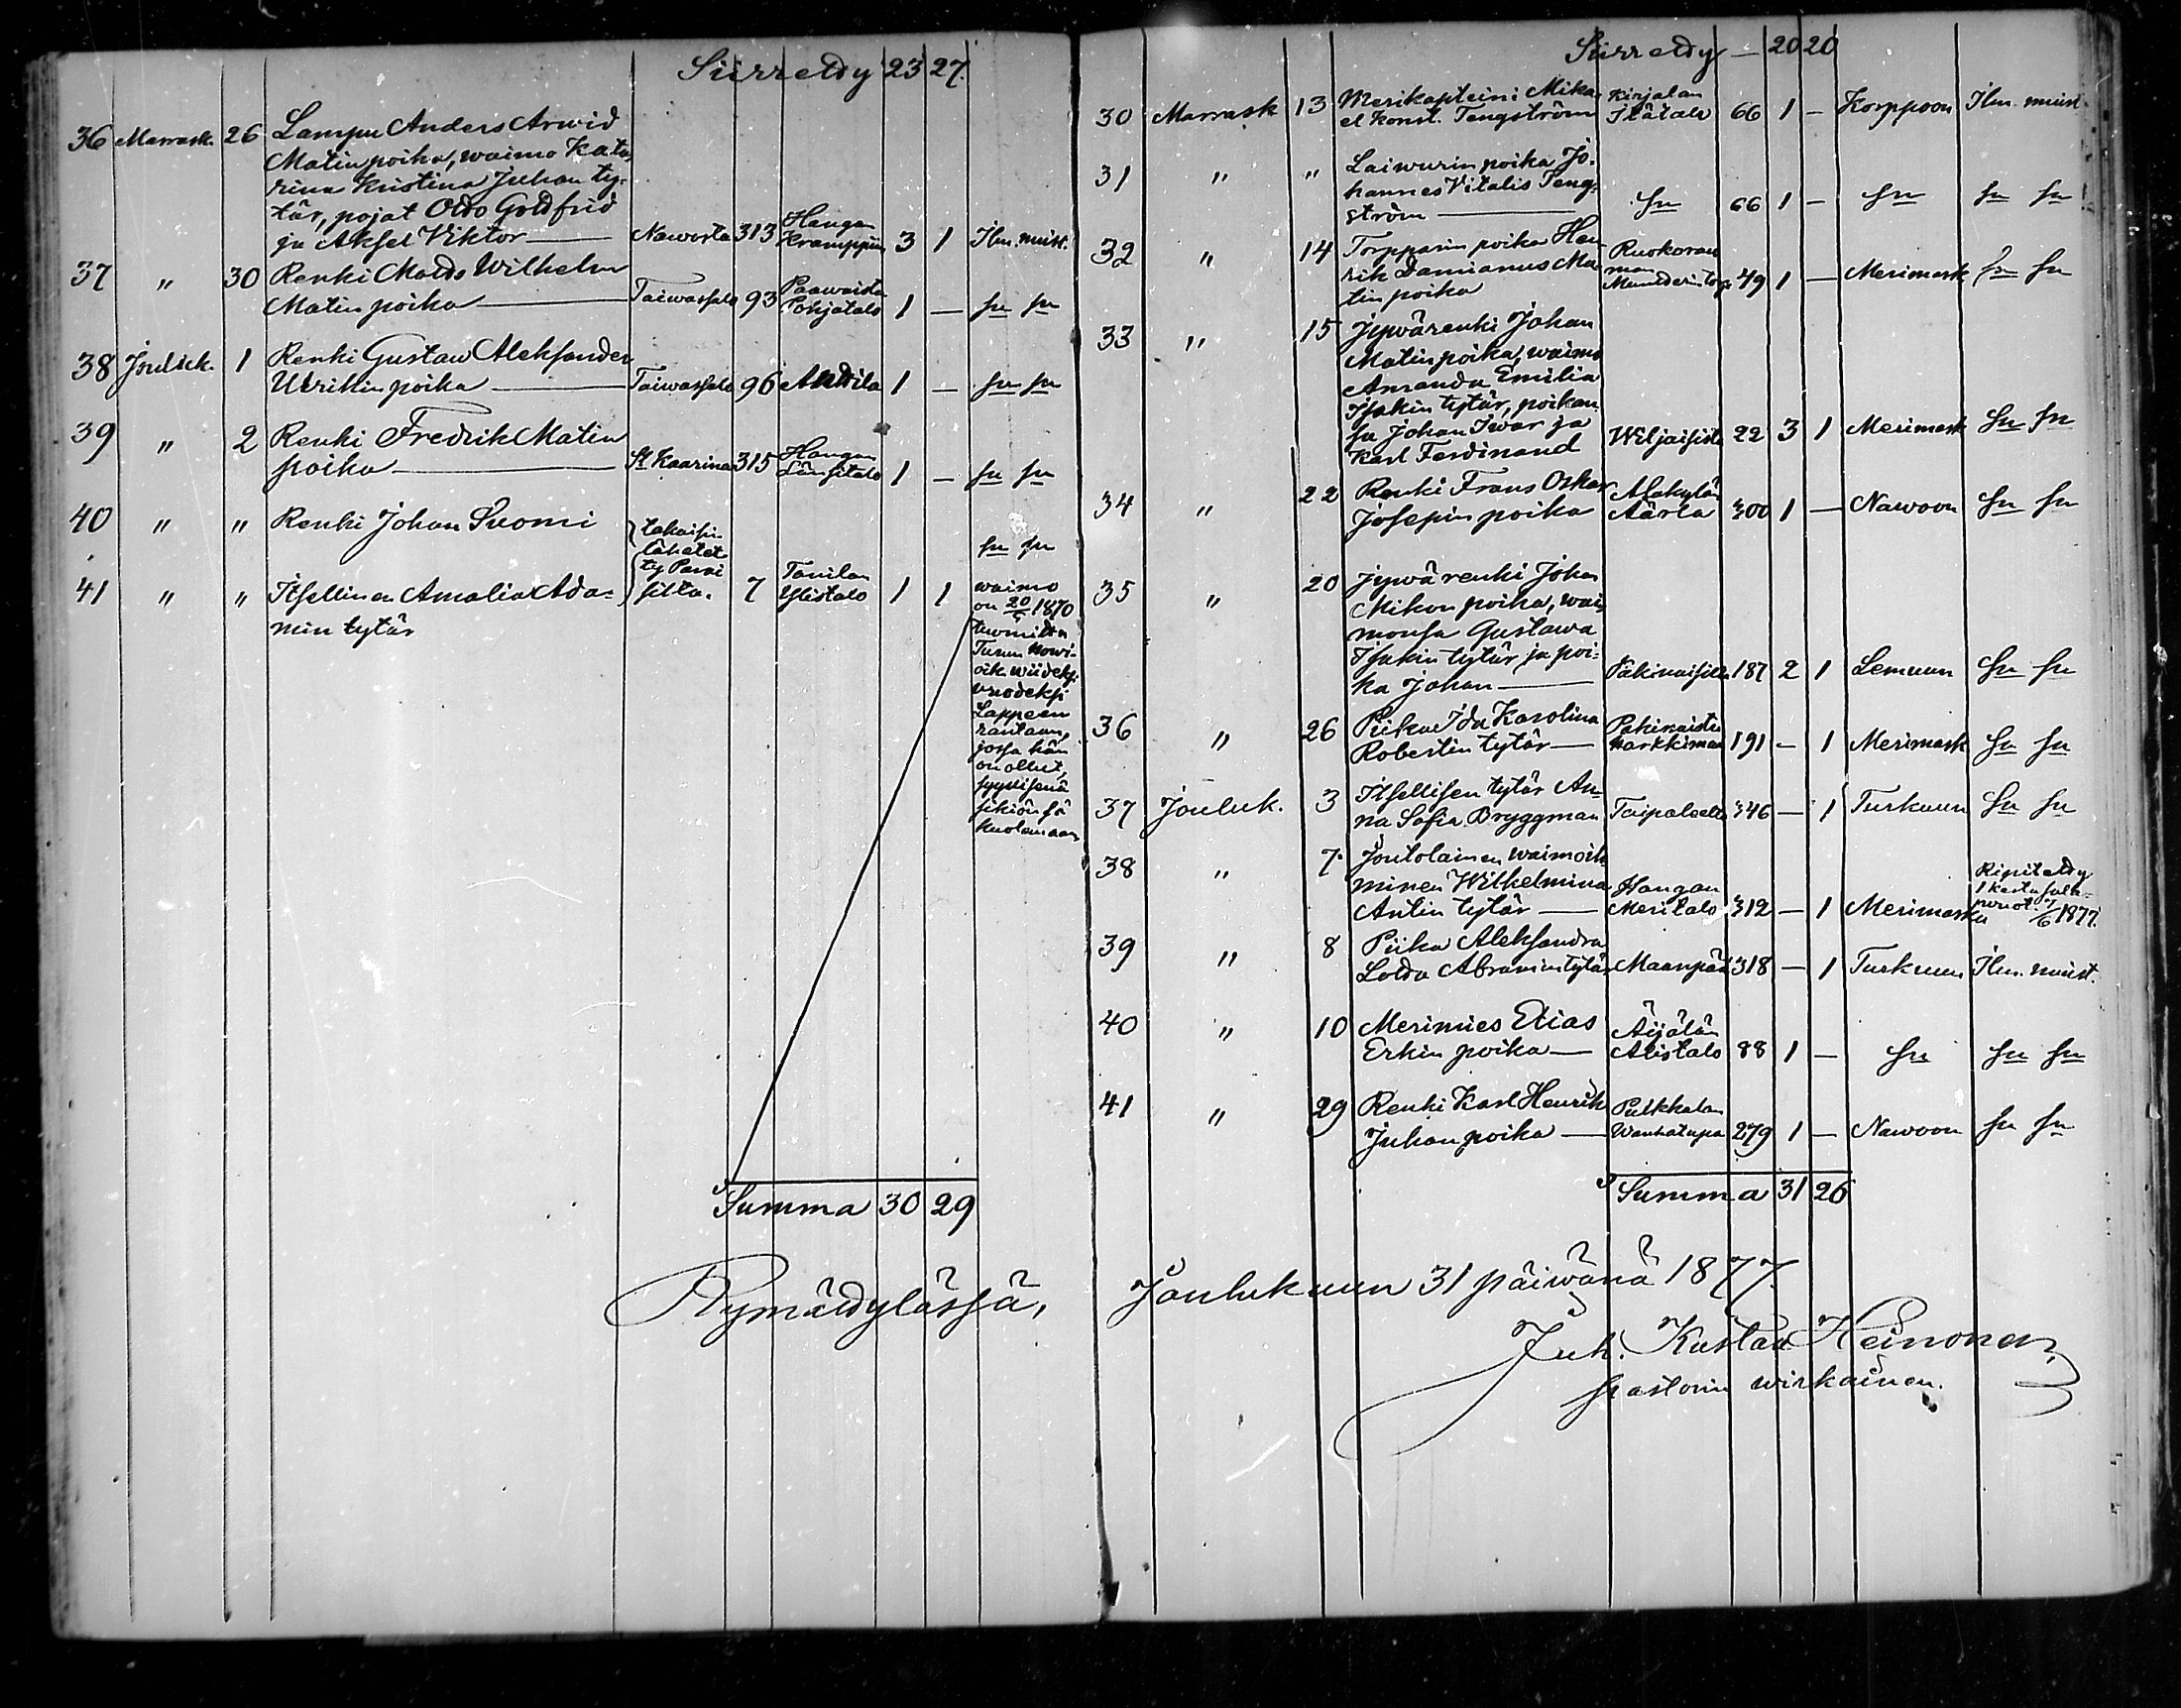 Siirretty 23 27
36 Marrask. 26 Lampu Anders Arwid
Matin poika, waimo Kata-
rina Kristina Juhan ty-
tär, pojat Otto Gottfrid
ja Aksel Viktor — Nawosta 313 Haugan Kramppin 3 1 Ilm. muist.
37 " 30 Renki Matts Wilhelm
Matin poika — Taiwassalo 93 Paawaista Pohjatalo 1 — sn sn
38 Jouluk. 1 Renki Gustaw Aleksander
Ulrikin poika — Taiwassalo 96 Anttila 1 — sn sn
39 " 2 Renki Fredrik Matin
poika — St Kaarina 315 Haugan Länsitalo 1 — sn sn
40 " " Renki Johan Suomi
takaisin
lähetet
ty Parai
silta.
sn sn
41 " " Itsellinen Amalia Ada-
min tytär
7 Tanilan Ylistalo 1 1
waimo
on 20/4 1870
tuomittu
Turun Howi-
oik. wiideksi
vuodeksi
Lappeen
rantaan,
jossa hän
on ollut,
syyllisenä
sikiönsä
kuolemaan
Summa 30 29
Siirretty — 20 20
30 Marrask 13 Merikapteini Mika-
el Konst. Tengström Kirjalan Itätalo 66 1 — Korppoon Ilm. muist.
31 " " Laiwurin poika Jo-
hannes Vitalis Teng-
ström — sn 66 1 — sn sn sn
32 " 14 Torpparin poika Hen-
rik Damianus Ma-
tin poika Ruokoran
man
49 1 — Merimask sn sn
33 " 15 Jywärenki Johan
Matin poika, waimo
Amanda Emilia
Isakin tytär, poikan-
sa Johan Iwar ja
Karl Ferdinand Wiljaisista 22 3 1 Merimask sn sn
34 " 22 Renki Frans Oskar
Josepin poika Alakylän Äärla 300 1 — Nawoon sn sn
35 " 20 Jywä renki Johan
Mikon poika, wai-
monsa Gustawa
Isakin tytär ja poi-
ka Johan — Pakinaisilta 187 2 1 Lemuun sn sn
36 " 26 Piika Ida Karolina
Robertin tytär — Pakinaisten Markkiman 191 — 1 Merimask sn sn
37 Jouluk. 3 Itsellisen tytär An-
na Sofia Bryggman Taipaleelta 346 — 1 Turkuun sn sn
38 " 7 Joutolainen waimoih-
minen Wilhelmina
Antin tytär — Haugan Meritalo 312 — 1 Merimasku
Ripitetty
1 kerta sala-
vuot. 7/6 1877.
39 " 8 Piika Aleksandra
Lotta Abramin tytär Maanpää 318 — 1 Turkuun Ilm. muist.
40 " 10 Merimies Elias
Erkin poika — Äijälän Alistalo 88 1 — sn sn sn
41 " 29 Renki Karl Henrik
Juhan poika — Pulkkalan Wanhatupa 279 1 — Nawoon sn sn
Summa 31 26
Rymättylässä, Joulukuun 31 päiwänä 1877.
Juh. Kustaa Heinonen,
pastorin wirkainen.